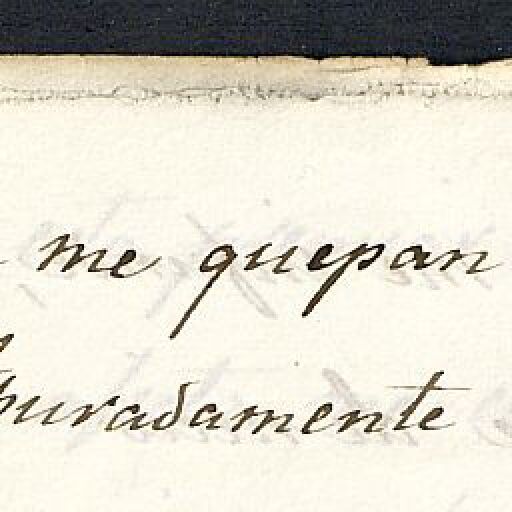 me quepan
puradamente